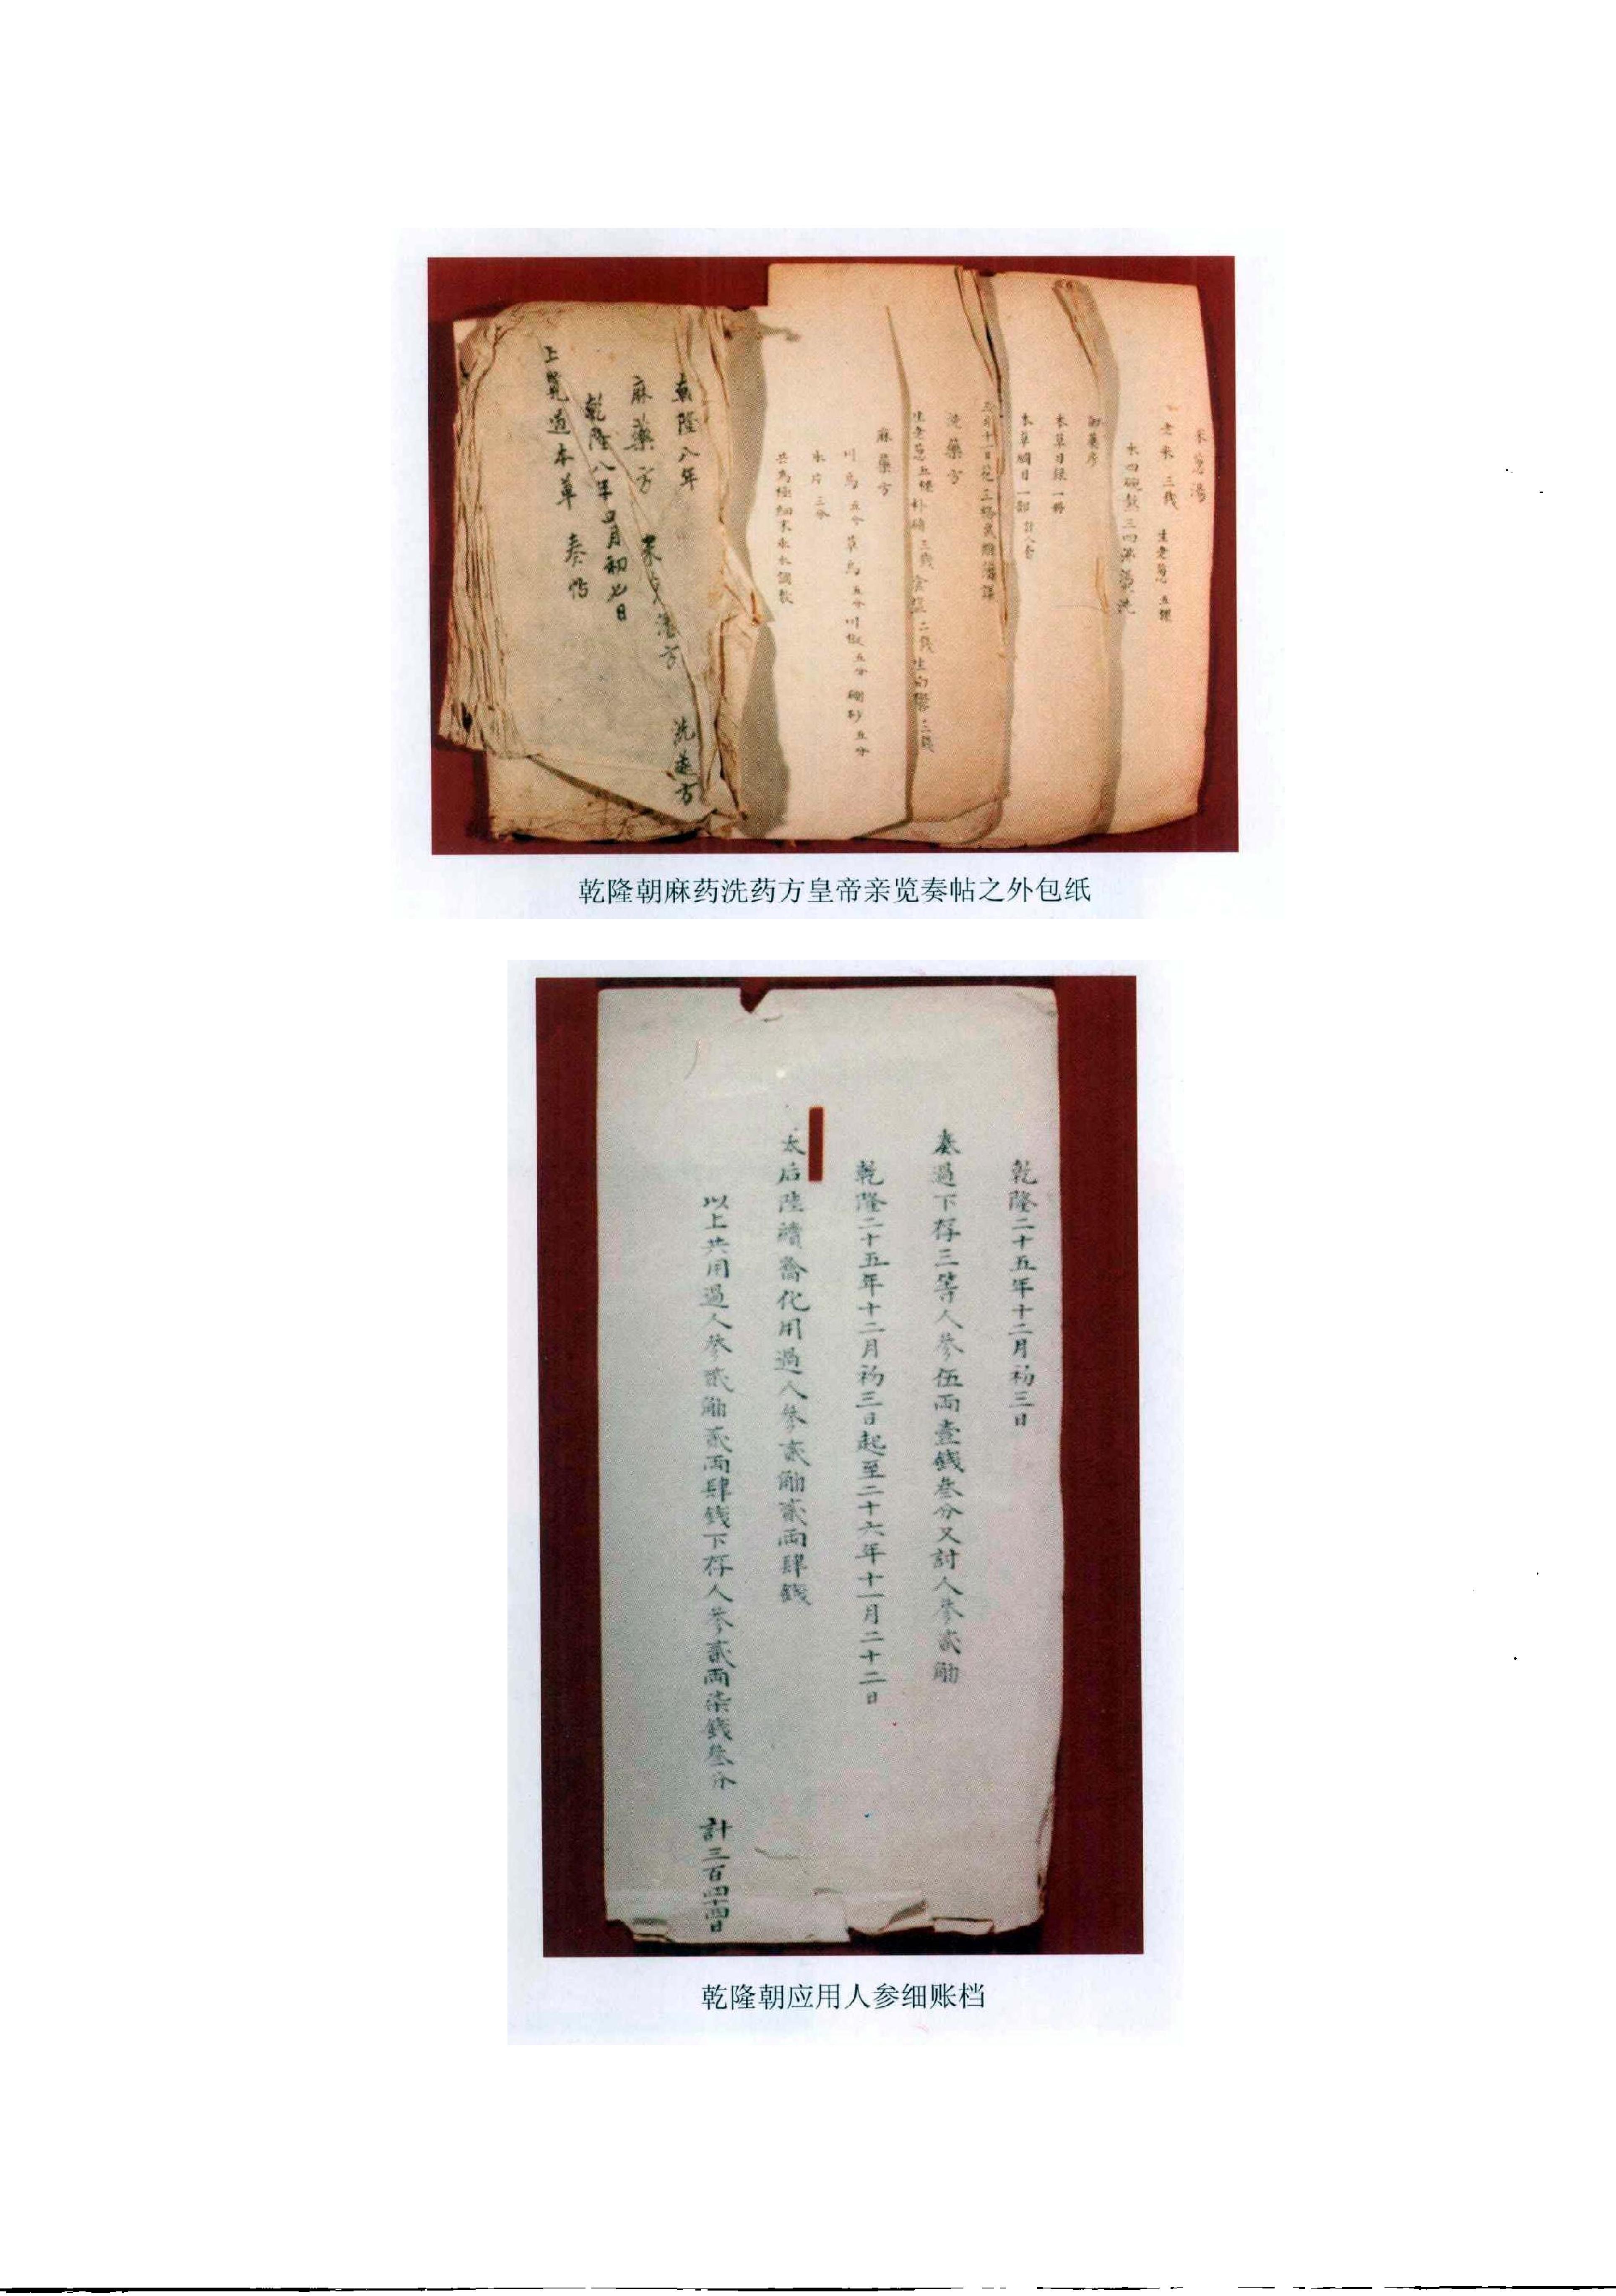 米葱湯
老米三錢 生老葱五棵
水四碗熬三四沸湯洗
御藥房
本草目錄一册
本草綱目一部 計八套
洗藥方
生老葱五棵 朴硝三錢 食鹽二錢 生白礬三錢
麻藥方
川烏五分 草烏五分 川椒五分 硼砂五分
氷片三分
共為極細末
乾隆八年
麻藥方 米葱湯方 洗藥方
乾隆八年四月初七日
上覽過本草 奏帖
乾隆朝麻药洗药方皇帝亲览奏帖之外包纸
乾隆二十五年十二月初三日
奏過下存三等人參伍兩壹錢叁分又討人參貳觔
乾隆二十五年十二月初三日起至二十六年十一月二十二日
太后陸續噙化用過人參貳觔貳兩肆錢
以上共用過人參貳觔貳兩肆錢下存人參貳兩柒錢叁分 計三百四十四日
乾隆朝应用人参细账档